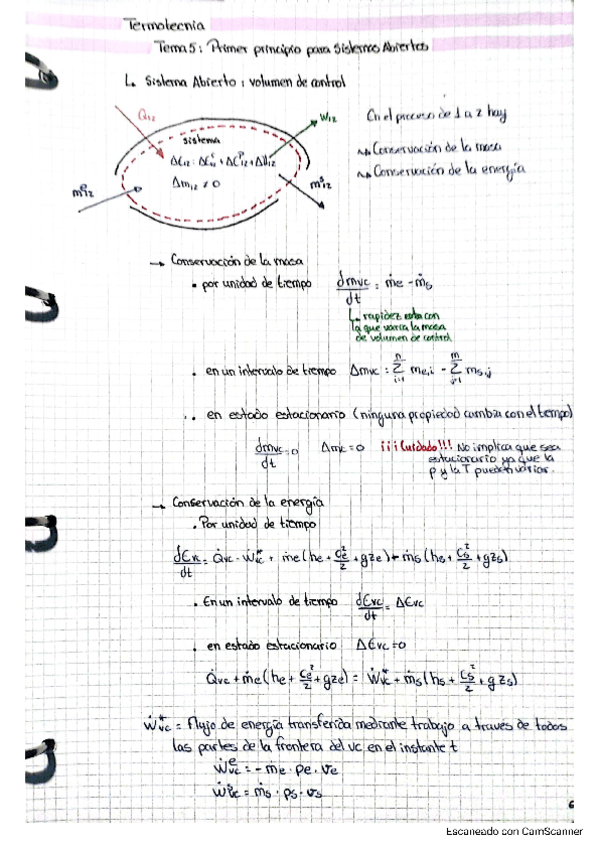 Termotecnia
Tema 5: Primer principio para Sistemas Abiertos
1. Sistema Abierto: volumen de control
Q12
W12
En el proceso de 1 a 2 hay
sistema
→ Conservación de la masa
ΔE12 = ΔEc12 + ΔEp12 + ΔU12
→ Conservación de la energía
Δm12 ≠ 0
me12
ms12
→ Conservación de la masa
• por unidad de tiempo dmvc/dt = ṁe - ṁs
↳ rapidez esta con
la que varia la masa
de volumen de control
• en un intervalo de tiempo Δmvc = Σ(i=1, n) me,i - Σ(j=1, m) ms,j
• en estado estacionario (ninguna propiedad cambia con el tiempo)
dmvc/dt = 0 Δmvc = 0 ¡¡¡Cuidado!!! No implica que sea
estacionario ya que la
p y la T pueden variar.
→ Conservación de la energía
• Por unidad de tiempo
dEvc/dt = Q̇vc - Ẇ*vc + ṁe(he + Ce²/2 + gze) - ṁs(hs + Cs²/2 + gzs)
• En un intervalo de tiempo dEvc/dt = ΔEvc
• en estado estacionario ΔEvc = 0
Q̇vc + ṁe(he + Ce²/2 + gze) = Ẇ*vc + ṁs(hs + Cs²/2 + gzs)
Ẇ*vc = Flujo de energía transferida mediante trabajo a través de todas
las partes de la frontera del vc en el instante t
Ẇevc = -ṁe · pe · ve
Ẇsvc = ṁs · ps · vs
6
Escaneado con CamScanner